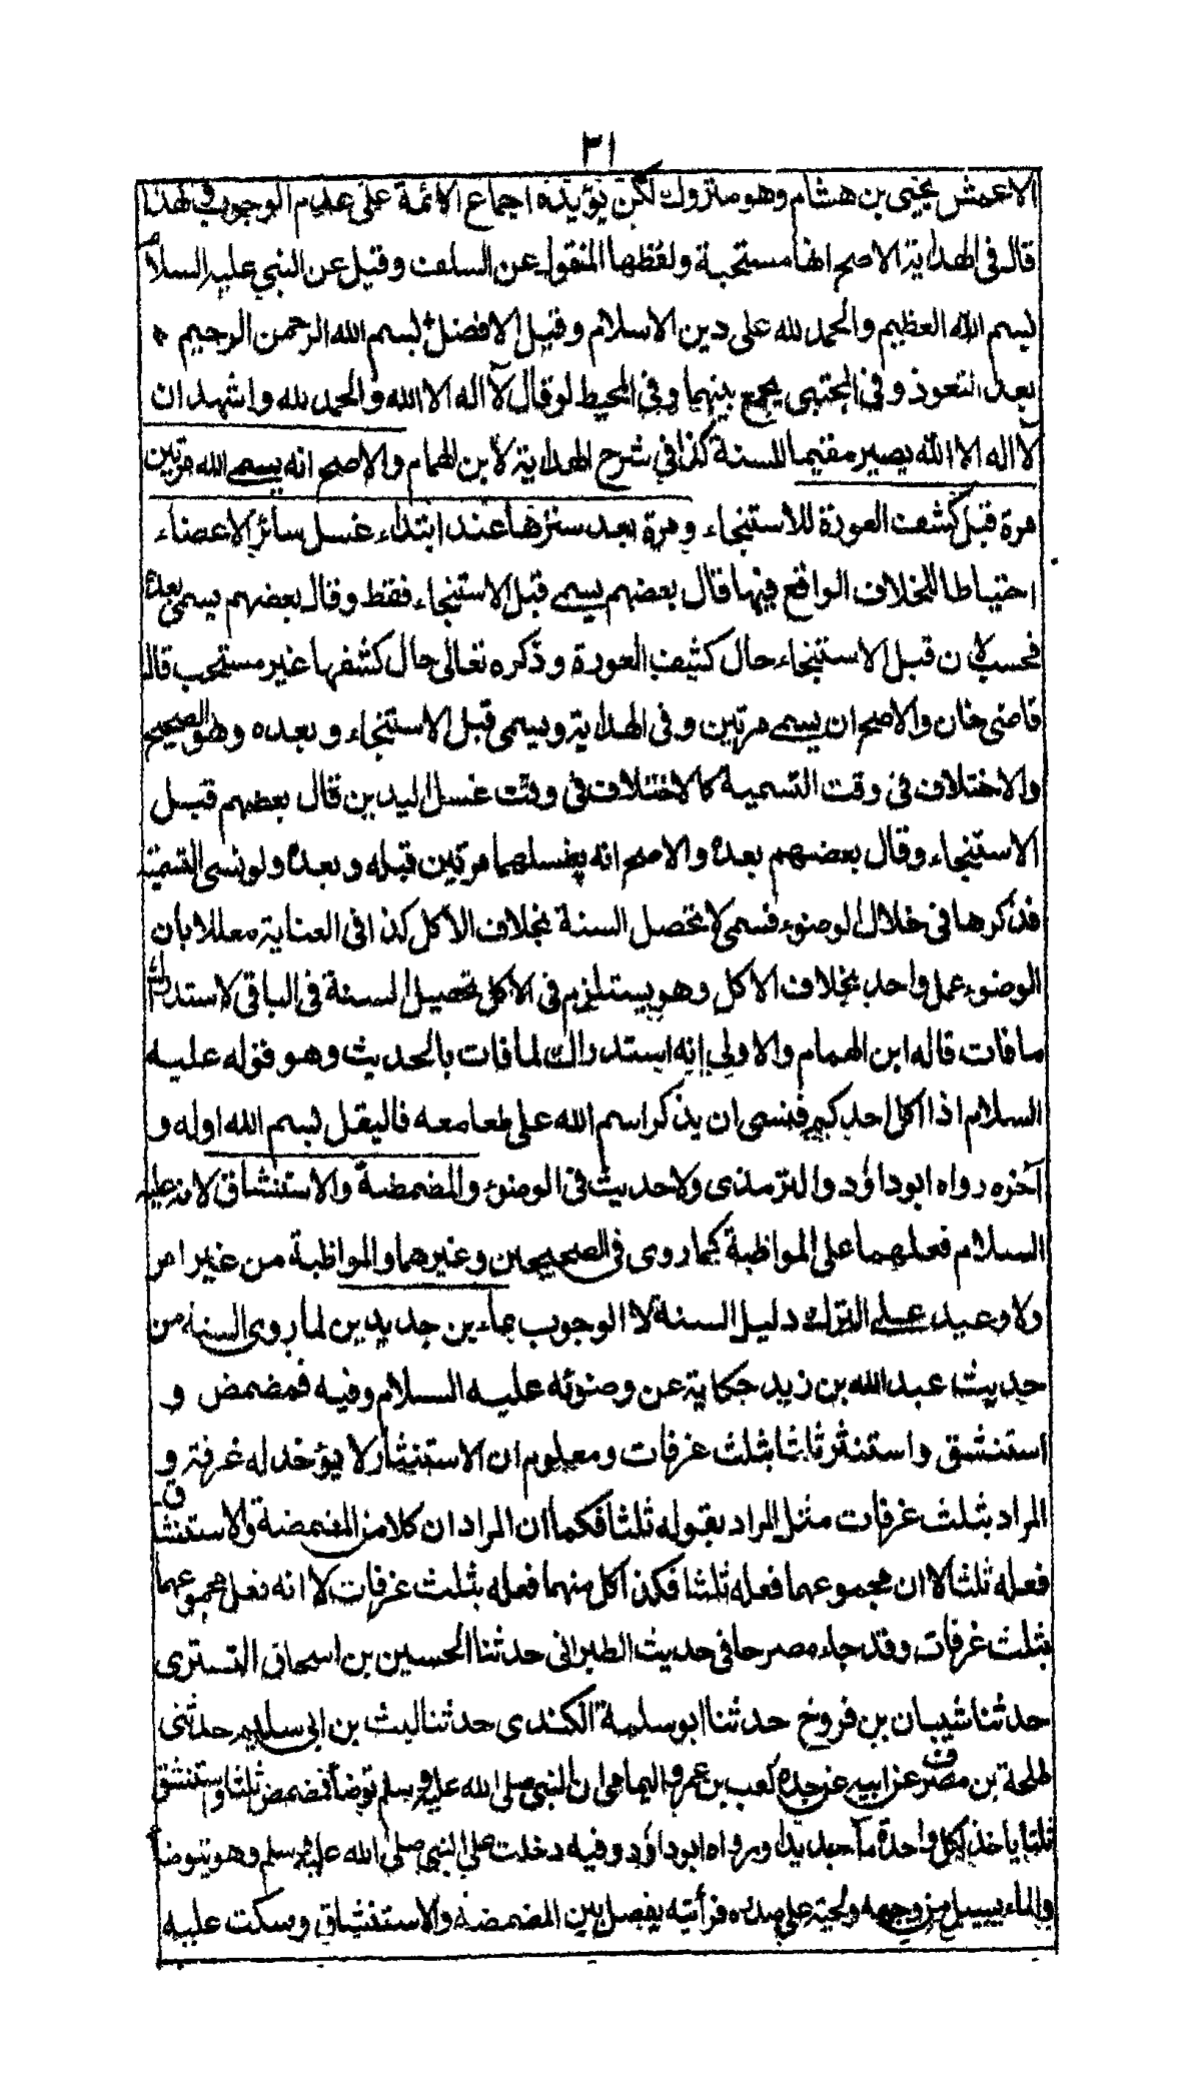 ٣١
الاعمش يحيى بن هشام وهو متروك لكن يؤيده اجماع الائمة على عدم الوجوب فى لهذا
قال فى الهداية الاصح انها مستحبة ولفظها المنقول عن السلف وقيل عن النبي عليه السلام
بسم الله العظيم والحمد لله على دين الاسلام وقيل الافضل بسم الله الرحمن الرحيم
بعد التعوذ وفى المجتبى يجمع بينهما وفى المحيط لو قال لآ اله الا الله والحمد لله واشهد ان
لآ اله الا الله يصير مقيما للسنة كذا في شرح الهداية لابن الهمام والاصح انه يسمى الله مرتين
مرة قبل كشف العورة للاستنجاء ومرة بعد سترها عند ابتداء غسل سائر الاعضاء
احتياطا للخلاف الواقع فيها قال بعضهم يسمى قبل الاستنجاء فقط وقال بعضهم يسمى بعده
فحسب لان قبل الاستنجاء حال كشف العورة وذكره تعالى حال كشفها غير مستحب قال
قاضى خان والاصح ان يسمى مرتين وفى الهداية ويسمى قبل الاستنجاء وبعده وهو الصحيح
والاختلاف فى وقت التسمية كالاختلاف فى وقت غسل اليدين قال بعضهم قبل
الاستنجاء وقال بعضهم بعده والاصح انه يغسلهما مرتين قبله وبعده ولو نسى التسمية
فذكرها فى خلال الوضوء فسمى لا تحصل السنة بخلاف الاكل كذا فى العناية معللا بأن
الوضوء عمل واحد بخلاف الاكل وهو يستلزم فى الاكل تحصيل السنة فى الباقى لا استدراك
ما فات قاله ابن الهمام والاولى انه استدراك لما فات بالحديث وهو قوله عليه
السلام اذا اكل احدكم فنسى ان يذكر اسم الله على طعامعه فاليقل بسم الله اوله و
آخره رواه ابو داؤد والترمذى ولا حديث فى الوضوء والمضمضة والاستنشاق لانه عليه
السلام فعلهما على المواظبة كما روى فى الصحيحين وغيرهما والمواظبة من غير امر
ولا وعيد على الترك دليل السنة لا الوجوب بماءين جديدين لما روى الستة من
حديث عبد الله بن زيد حكاية عن وضوئه عليه السلام وفيه فمضمض و
استنشق واستنثر ثلثا بثلث غرفات ومعلوم ان الاستنثار لا يؤخذ له غرفة و
المراد بثلث غرفات مثل المراد بقوله ثلثا فكما ان المراد ان كلا من المضمضة والاستنشاق
فعله ثلثا لا ان مجموعهما فعله ثلثا فكذا كل منهما فعله بثلث غرفات لا انه فعل مجموعهما
بثلث غرفات وقد جاء مصرحا فى حديث الطبرانى حدثنا الحسين بن اسحاق التسترى
حدثنا شيبان بن فروخ حدثنا ابو سلمة الكندى حدثنا ليث بن ابى سليم حدثنى
طلحة بن مصرف عن ابيه عن جده كعب بن عمرو اليمامى ان النبي صلى الله عليه وسلم توضأ فمضمض ثلثا واستنشق
ثلثا ياخذ لكل واحدة مآ جديدا ورواه ابو داؤد وفيه دخلت على النبي صلى الله عليه وسلم وهو يتوضأ
والماء يسيل من وجهه ولحيته على صدره فرأيته يفصل بين المضمضة والاستنشاق وسكت عليه